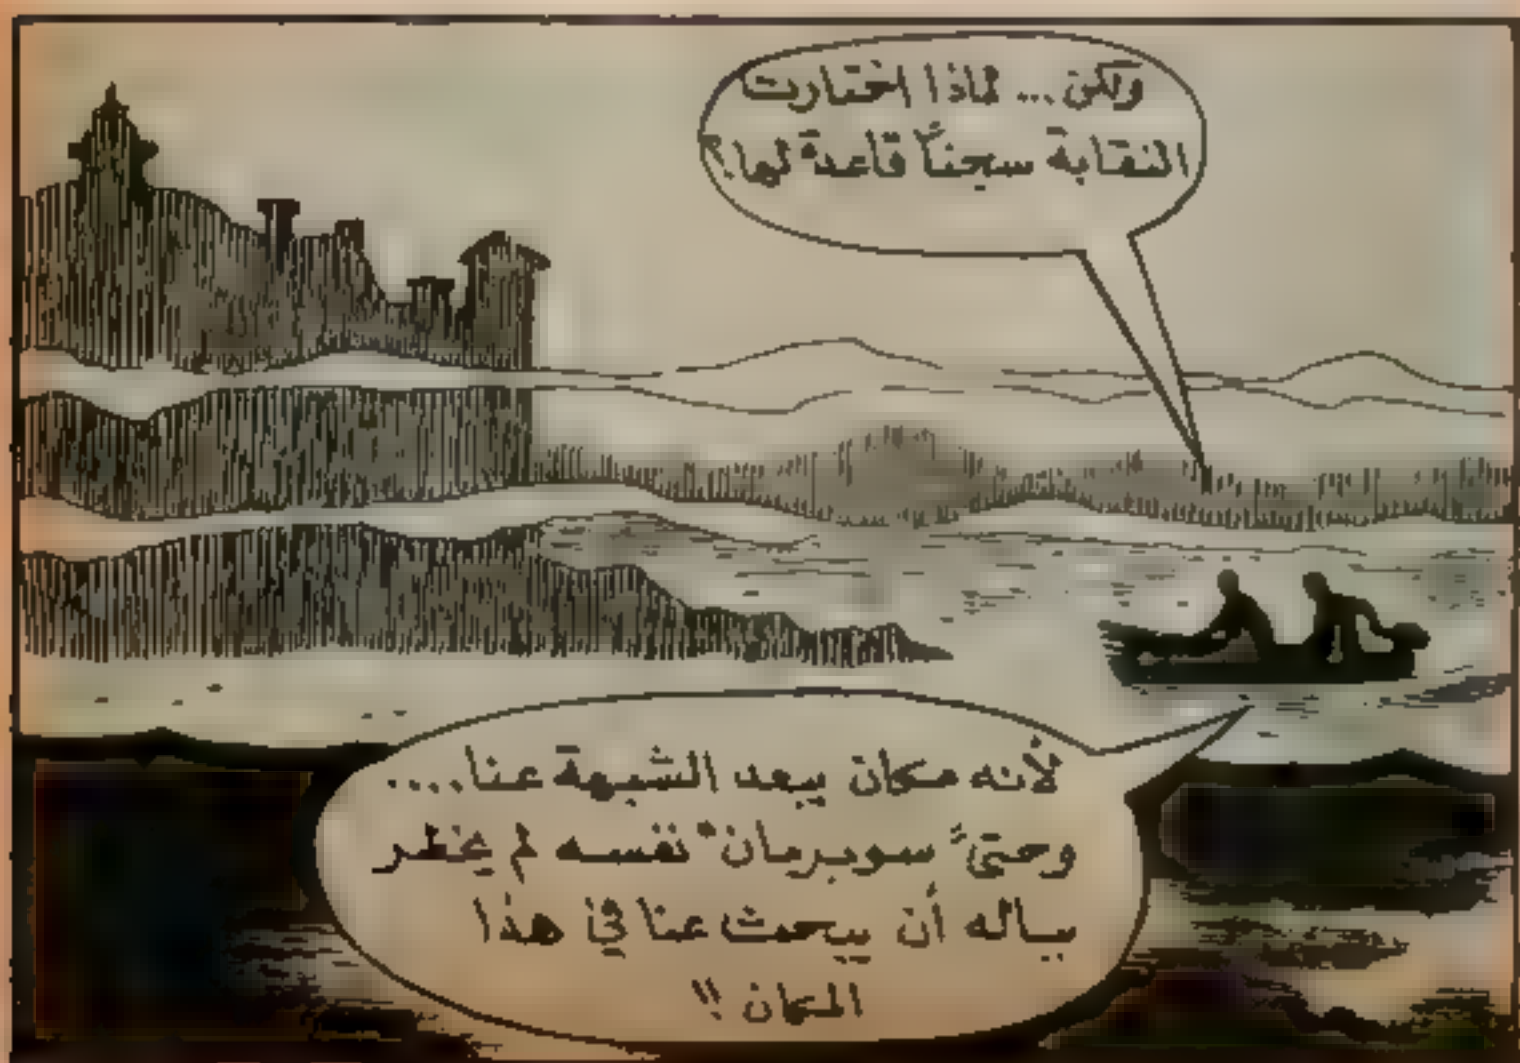 ولكن ... لماذا اختارت
النقابة سجناً قاعدة لها؟
لأنه مكان يبعد الشبهة عنا....
وحتى "سوبرمان" نفسه لم يخطر
بباله أن يبحث عنا في هذا
المكان !!